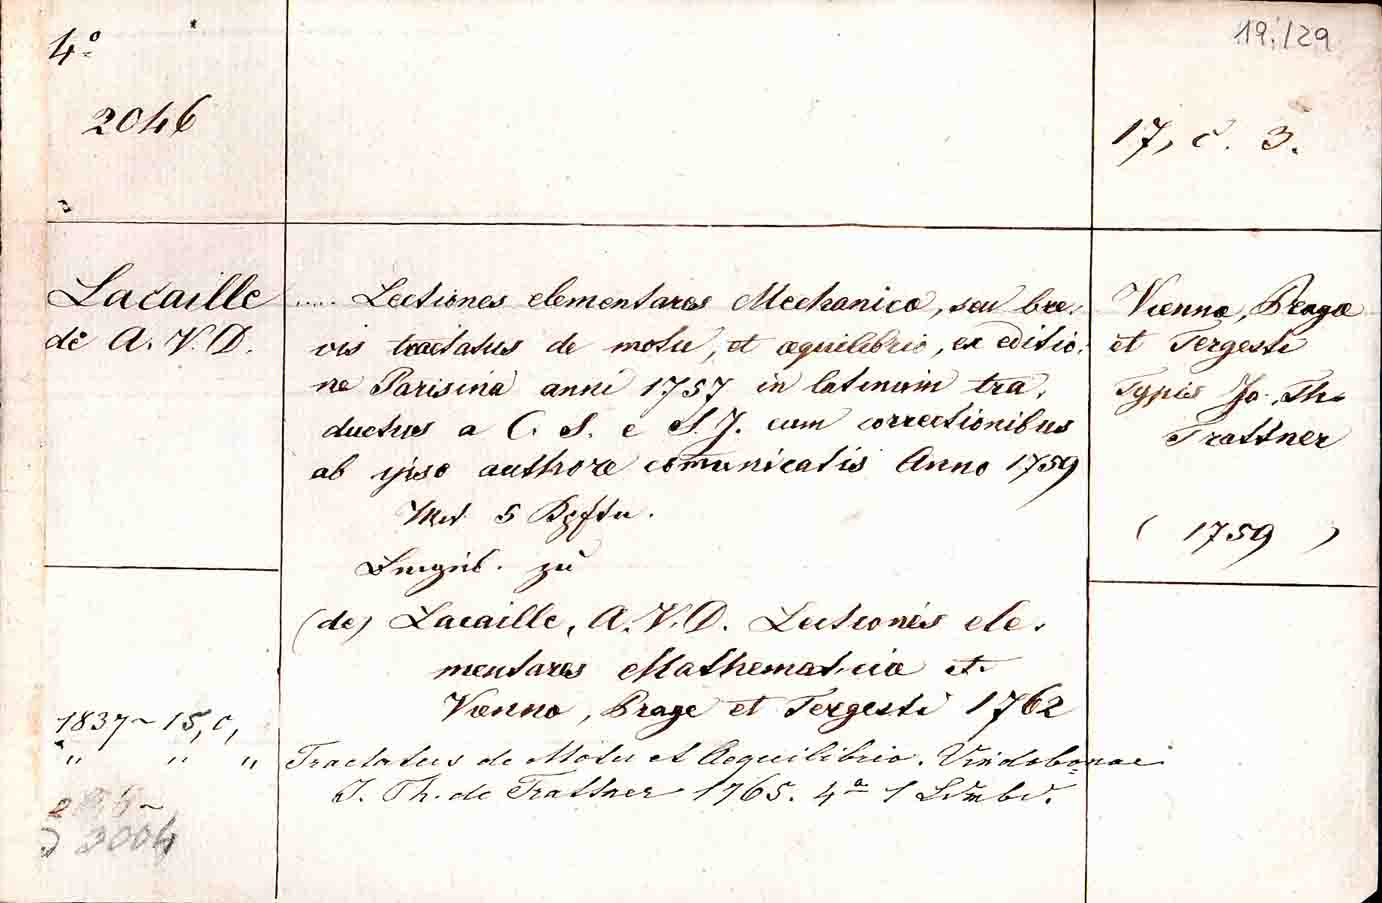 4º
19./29
2046
17, c. 3.
Lacaille
de A. V. D.
..... Lectiones elementares Mechanicæ, seu bre-
vis tractatus de motu, et æquilibrio, ex editio-
ne Parisina anni 1757 in latinum tra-
ductus a C. S. e S. J. cum correctionibus
ab ipso authore comunicatis Anno 1759
Mit 5
zu
(de) Lacaille, A. V. D. Lectiones ele-
mentares Mathematicæ et
Viennæ, Pragæ et Tergesti 1762
Viennæ, Pragæ
et Tergesti
Typis Jo. Th.
Trattner
( 1759 )
1837~ 15, c,
" " " Tractatus de Motu et Aequilibrio. Vindobonae
J. Th. de Trattner 1765. 4º 1
2004